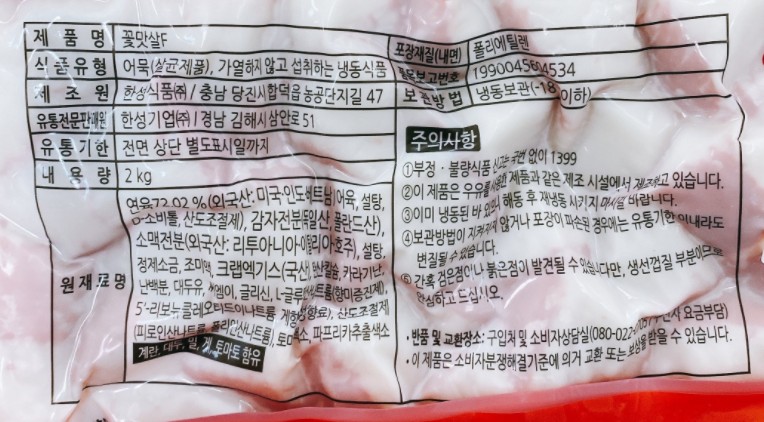 제 품 명 꽃맛살F
식 품 유 형 어묵(살균제품), 가열하지 않고 섭취하는 냉동식품
제 조 원 한성식품㈜ / 충남 당진시 합덕읍 농공단지길 47
유통전문판매원 한성기업㈜ / 경남 김해시 삼안로 51
유 통 기 한 전면 상단 별도표시일까지
내 용 량 2 kg
원 재 료 명
연육72.02 % (외국산: 미국·인도·베트남/어육, 설탕,
D-소비톨, 산도조절제), 감자전분(독일산·폴란드산),
소맥전분(외국산: 리투아니아·호주), 설탕,
정제소금, 조미액, 크랩엑기스(국산), 탄산칼슘, 카라기난,
난백분, 대두유, 글리신,
5'-리보뉴클레오티드이나트륨 산도조절제
(피로인산나트륨, 폴리인산나트륨), 토마토색소, 파프리카추출색소
계란, 대두, 밀, 게, 토마토 함유
포장재질(내면) 폴리에틸렌
품목보고번호
보관방법 냉동보관(-18 이하)
주의사항
①부정 · 불량식품 신고는 국번 없이 1399
②이 제품은 우유를 사용한 제품과 같은 제조 시설에서 제조하고 있습니다.
③이미 냉동된 바 있으니 해동 후 재냉동시키지 마시길 바랍니다.
④보관방법이 지켜지지 않거나 포장이 파손된 경우에는 유통기한 이내라도
변질될 수 있습니다.
⑤간혹 검은점이나 붉은점이 발견될 수 있습니다만, 생선껍질 부분이므로
안심하고 드십시오.
· 반품 및 교환장소: 구입처 및 소비자상담실(080-022- 요금부담)
· 이 제품은 소비자분쟁해결기준에 의거 교환 또는 보상을 받을 수 있습니다.